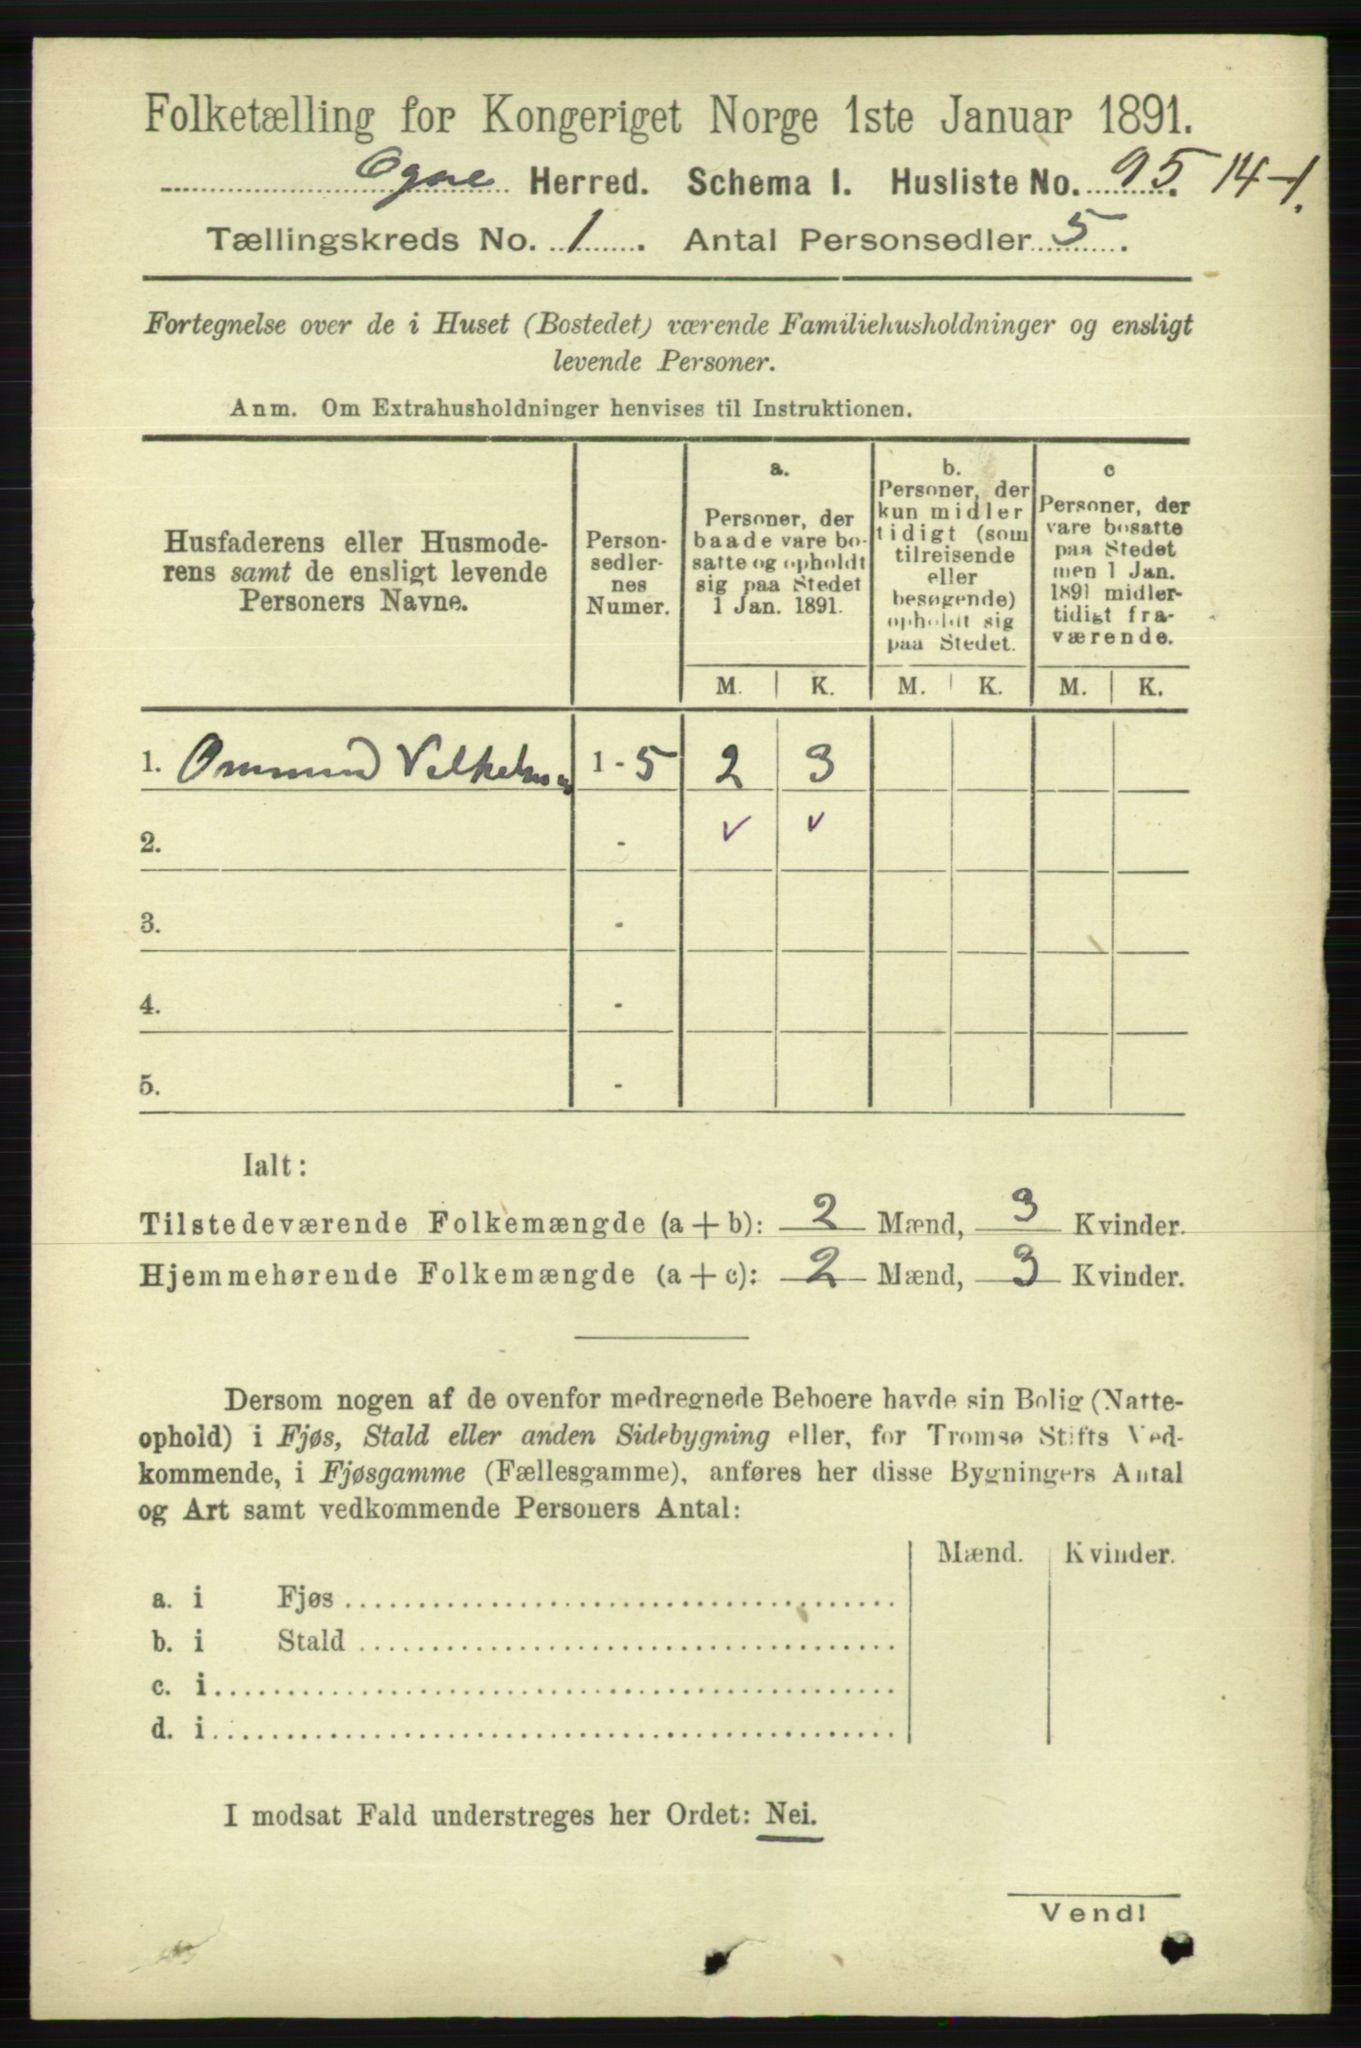 Folketælling for Kongeriget Norge 1ste Januar 1891.
Ogne Herred. Schema I. Husliste No. 95. 14-1.
Tællingskreds No. 1. Antal Personsedler 5.
Fortegnelse over de i Huset (Bostedet) værende Familiehusholdninger og ensligt
levende Personer.
Anm. Om Extrahusholdninger henvises til Instruktionen.
Husfaderens eller Husmode-
rens samt de ensligt levende
Personers Navne.
Person-
sedler-
nes
Numer.
a.
Personer, der
baade vare bo-
satte og opholdt
sig paa Stedet
1 Jan. 1891.
b.
Personer, der
kun midler
tidigt (som
tilreisende
eller
besøgende)
opholdt sig
paa Stedet.
c
Personer, der
vare bosatte
paa Stedet
men 1 Jan.
1891 midler-
tidigt fra-
værende.
M. K. M. K. M. K.
1. Ommund 1 - 5 2 3
2. - ✓ ✓
3. -
4. -
5. -
Ialt:
Tilstedeværende Folkemængde (a + b): 2 Mænd, 3 Kvinder.
Hjemmehørende Folkemængde (a + c): 2 Mænd, 3 Kvinder.
Dersom nogen af de ovenfor medregnede Beboere havde sin Bolig (Natte-
ophold) i Fjøs, Stald eller anden Sidebygning eller, for Tromsø Stifts Ved-
kommende, i Fjøsgamme (Fællesgamme), anføres her disse Bygningers Antal
og Art samt vedkommende Personers Antal:
Mænd. Kvinder.
a. i Fjøs
b. i Stald
c. i
d. i
I modsat Fald understreges her Ordet: Nei.
Vend!